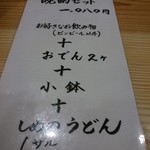 晩酌セット
一、〇八〇円
お好きなお飲み物
(ビンビール以外)
十
おでん2ヶ
十
小鉢
十
しめのうどん
1ザル